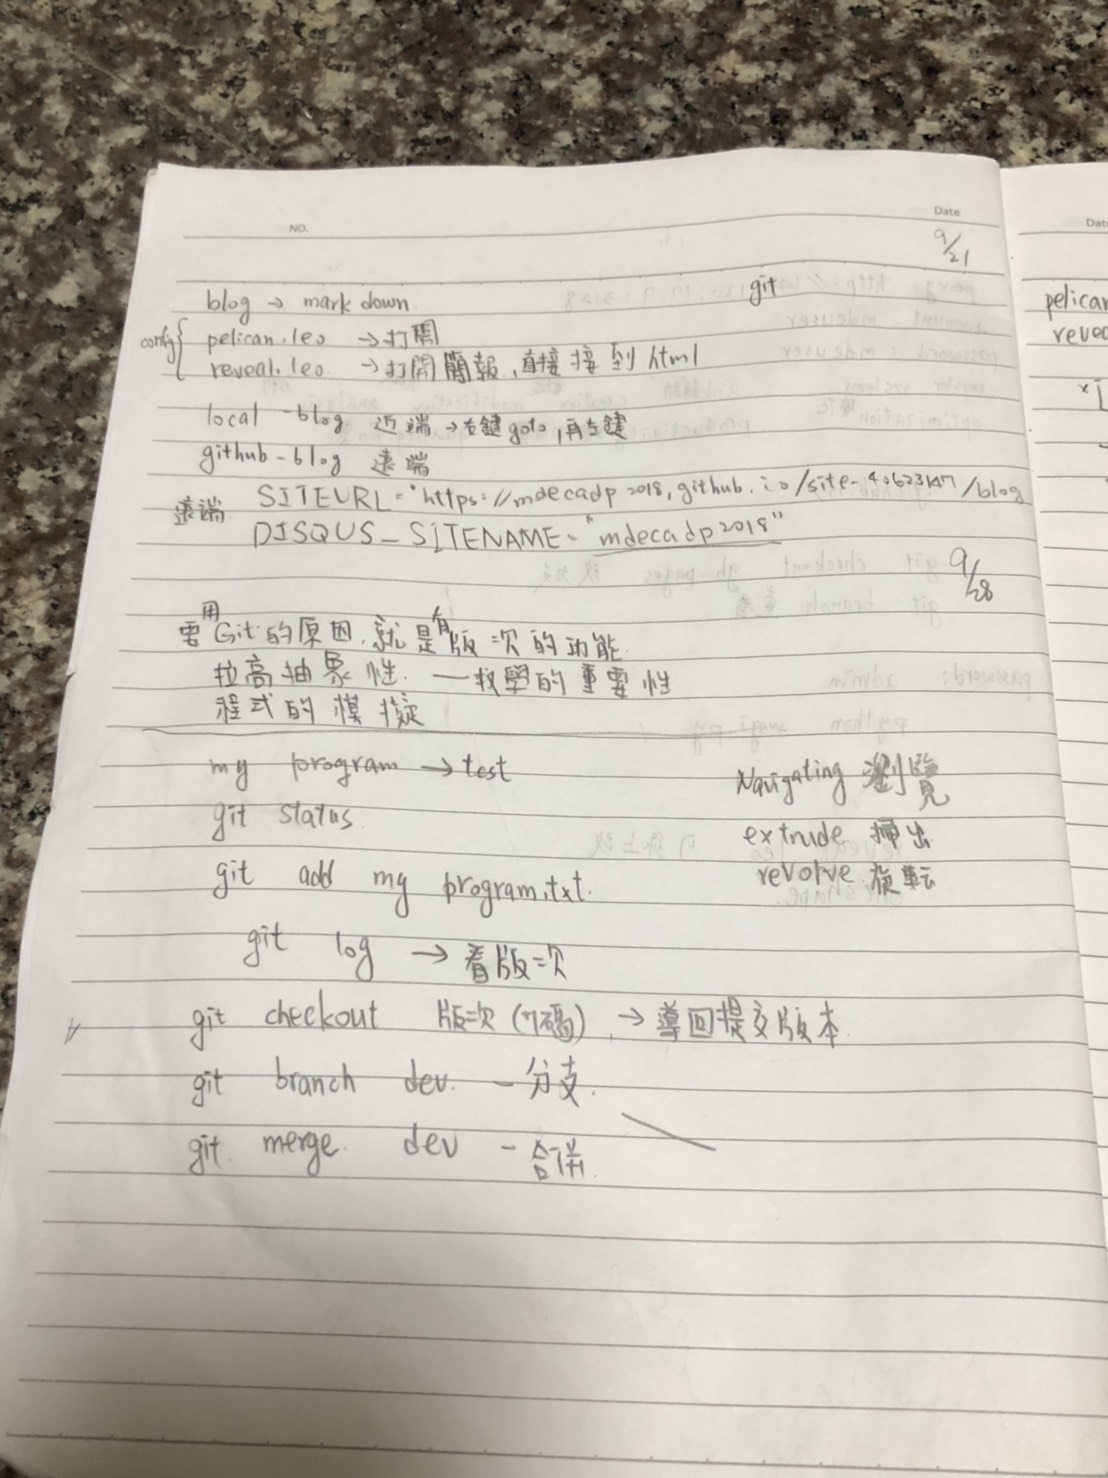 NO.
Date
9/21
blog → mark down
git
config { pelican.leo → 打開
reveal.leo → 打開簡報,直接接到 html
local-blog 近端 → 右鍵goto,再左鍵
github-blog 遠端
遠端 SITEURL = "https://mdecadp2018.github.io/site-40623147/blog
DISQUS_SITENAME = "mdecadp2018"
9/28
要用Git的原因,就是有版次的功能.
拉高抽象性. — 教學的重要性
程式的模擬
my program → test
Navigating 瀏覽
git status.
extrude 掃出
revolve 旋転
git add my program.txt.
git log → 看版次
git checkout 版次(7碼) → 導回提交版本
git branch dev. - 分支.
git merge. dev - 合併.
Date
pelican